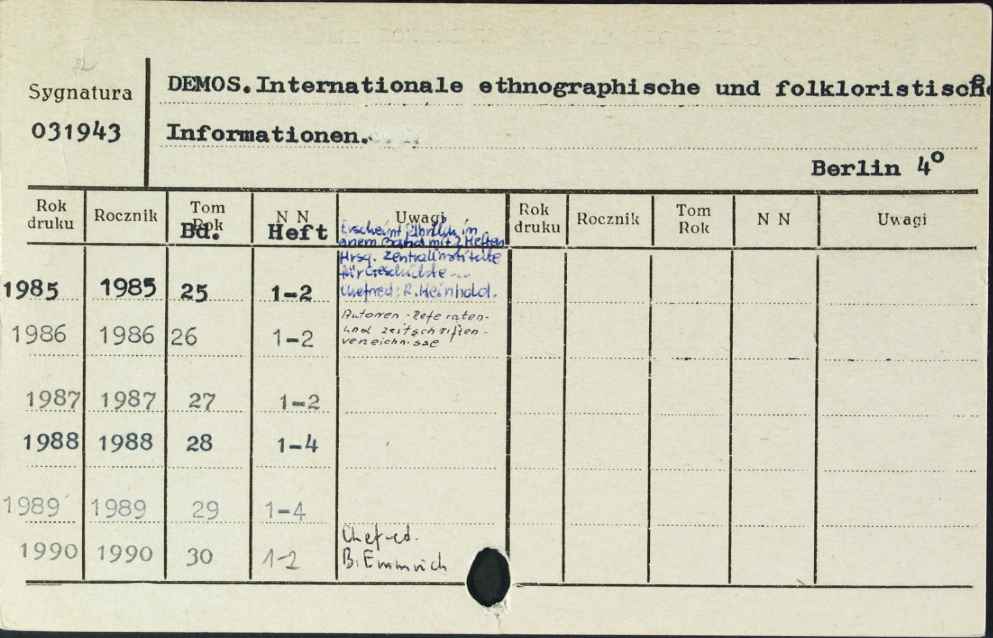 Sygnatura
031943
DEMOS. Internationale ethnographische und folkloristische
Informationen.
Berlin 4°
Rok druku Rocznik Tom Rok N N Uwagi Rok druku Rocznik Tom Rok N N Uwagi
Bd. Heft
Erscheint jährlich in
einem Band mit 2 Heften
Hrsg. Zentralinstitute
für Geschichte
Chefred: R. Heinhold.
1985 1985 25 1-2
Autoren - Referaten-
und Zeitschriften-
verzeichnisse
1986 1986 26 1-2
1987 1987 27 1-2
1988 1988 28 1-4
1989 1989 29 1-4
Chefred.
B. Emmrich
1990 1990 30 1-2